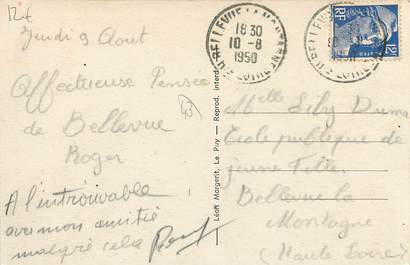 12€
Jeudi 9 Aout
Affectueuse Pensée
de Bellevue
Roger
A l'introuvable
avec mon amitié
malgré cela
BELLEVUE LA MONTAGNE
18 30
10 - 8
1950
HTE LOIRE
RF
12F
Léoff Margerit, Le Puy — Reprod. interd.
Melle Lily Dumas
Ecole publique de
jeune Fille
Bellevue la
Montagne
(Haute Loire)